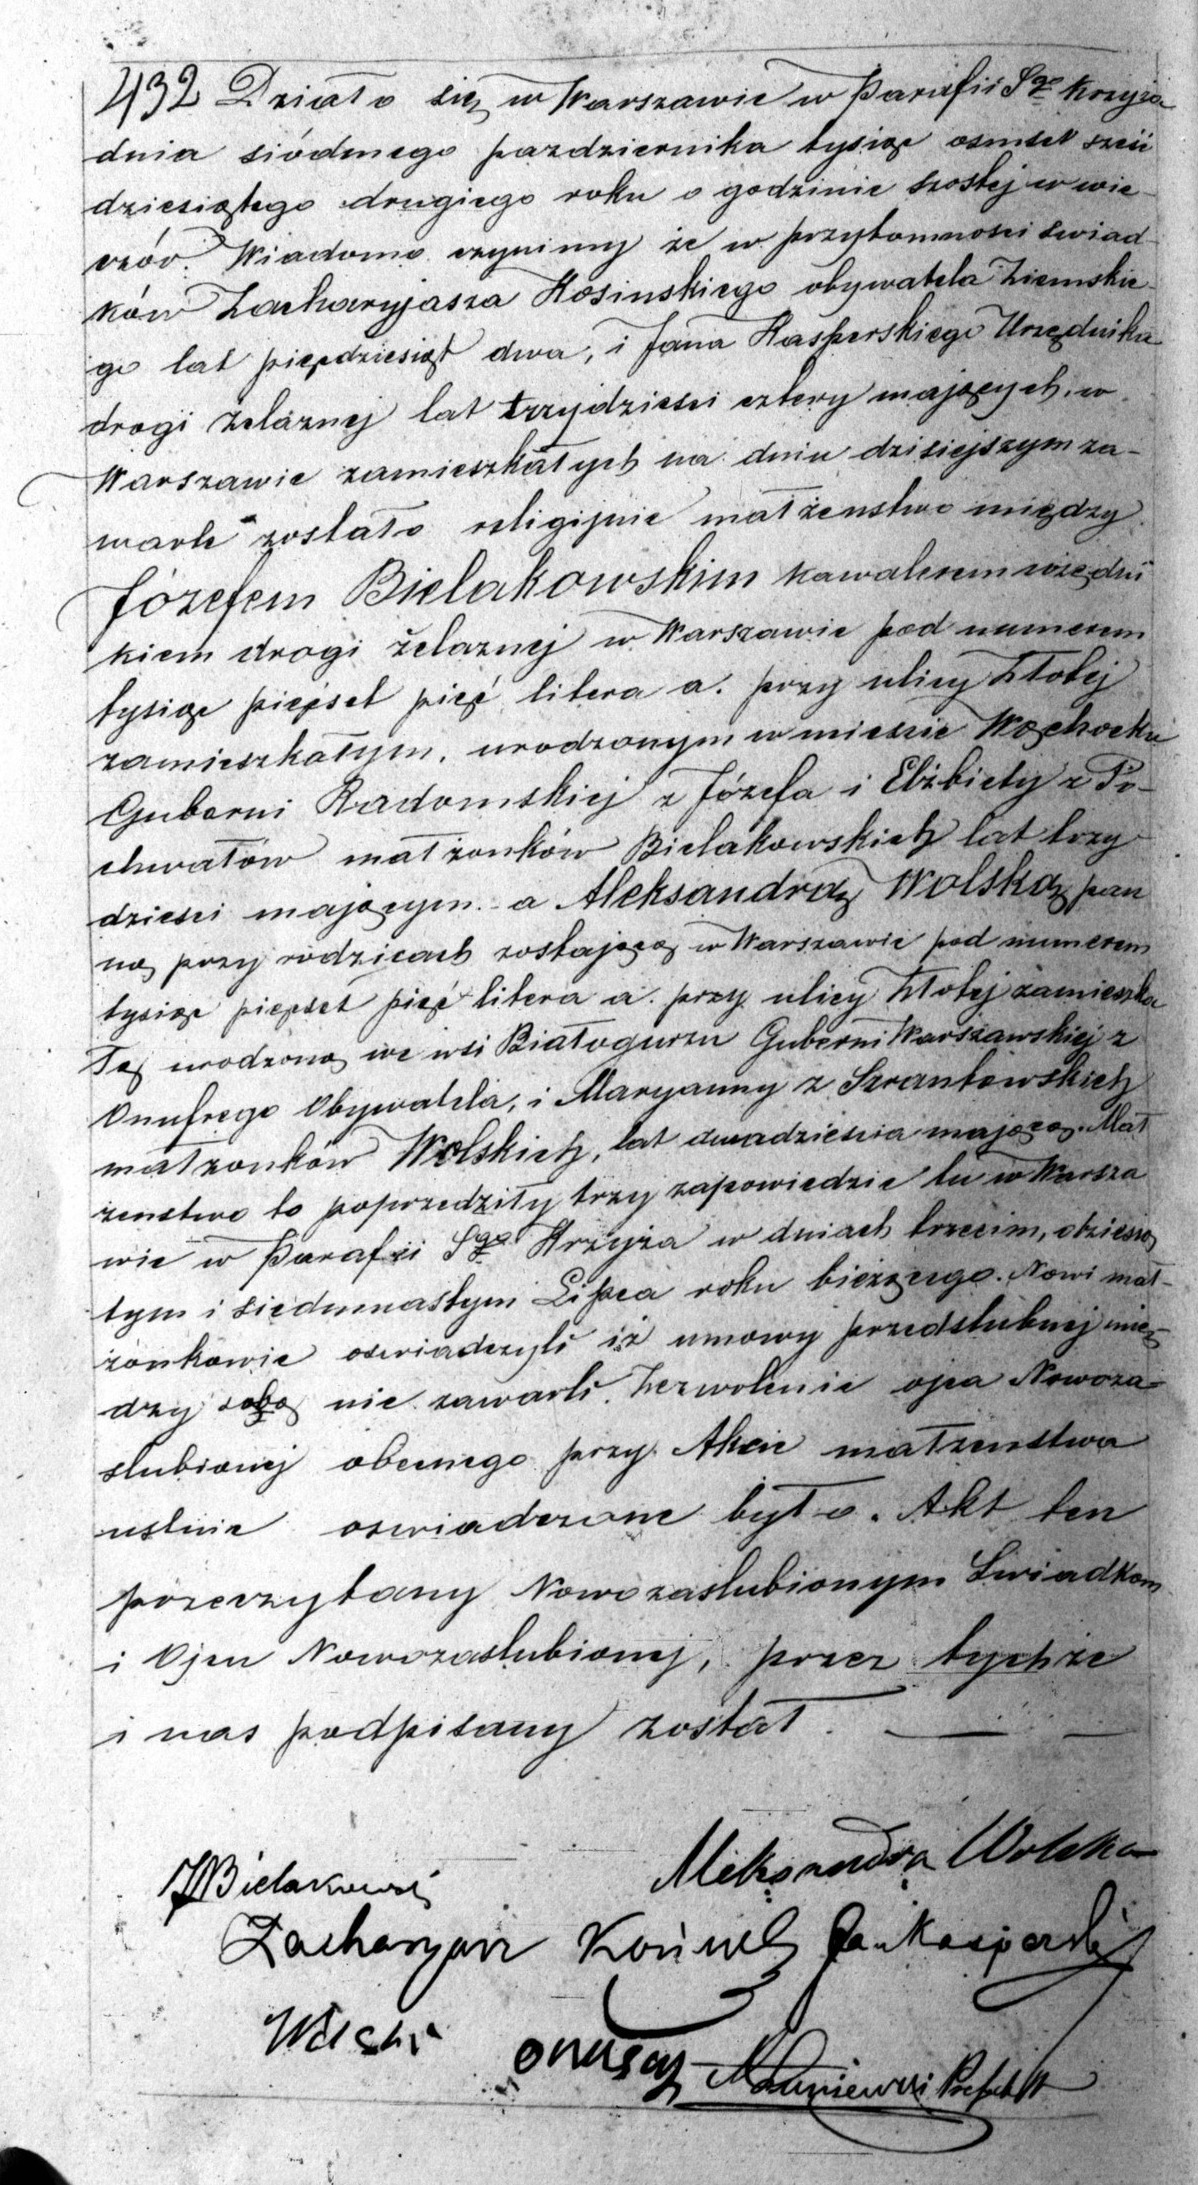 432 Działo się w Warszawie w Parafii Sgo Krzyża
dnia siódmego pazdziernika tysiąc osmset sześć
dziesiątego drugiego roku o godzinie szostej w wie-
czór. Wiadomo czynimy że w przytomności swiad-
ków Zacharyjasza Kosinskiego obywatela Ziemskie-
go lat pięćdziesiąt dwa, i Jana Kasperskiego Urzędnika
drogi żelaznej lat trzydziesci cztery mających, w
Warszawie zamieszkałych na dniu dzisiejszym za-
warte zostało religijnie małżenstwo między
Józefem Bielakowskim kawalerem urzędni
kiem drogi żelaznej w Warszawie pod numerem
tysiąc pięćset pięć litera a. przy ulicy Złotej
zamieszkałym, urodzonym w miescie Wąchocku
Guberni Radomskiej z Józefa i Elżbiety z Po-
chwałów małżonków Bielakowskich lat trzy
dziesci mającym - a Aleksandrą Wolską pan
ną przy rodzicach zostającą w Warszawie pod numerem
tysiąc pięćset pięć litera a. przy ulicy Złotej zamieszka
łą urodzoną we wsi Białogurzu Guberni Warszawskiej z
Onufrego Obywatela, i Maryanny z Szrantowskich
małżonków Wolskich, lat dwadziescia mającą. Mał
żenstwo to poprzedziły trzy zapowiedzie tu w Warsza
wie w Parafii Sgo Krzyża w dniach trzecim, dziesią
tym i siedmnastym Lipca roku bieżącego. Nowi mał-
żonkowie oswiadczyli iż umowy przedslubnej mię-
dzy sobą nie zawarli. Zezwolenie ojca Nowoza-
slubionej obecnego przy Akcie małżenstwa
ustnie oswiadczone było. Akt ten
przeczytany Nowozaslubionym Swiadkom
i Ojcu Nowozaslubionej, przez tychże
i nas podpisany został.
JBielakowski
Aleksandra Wolska
Zacharyasz Kosinski Jan Kasperski
Wolski